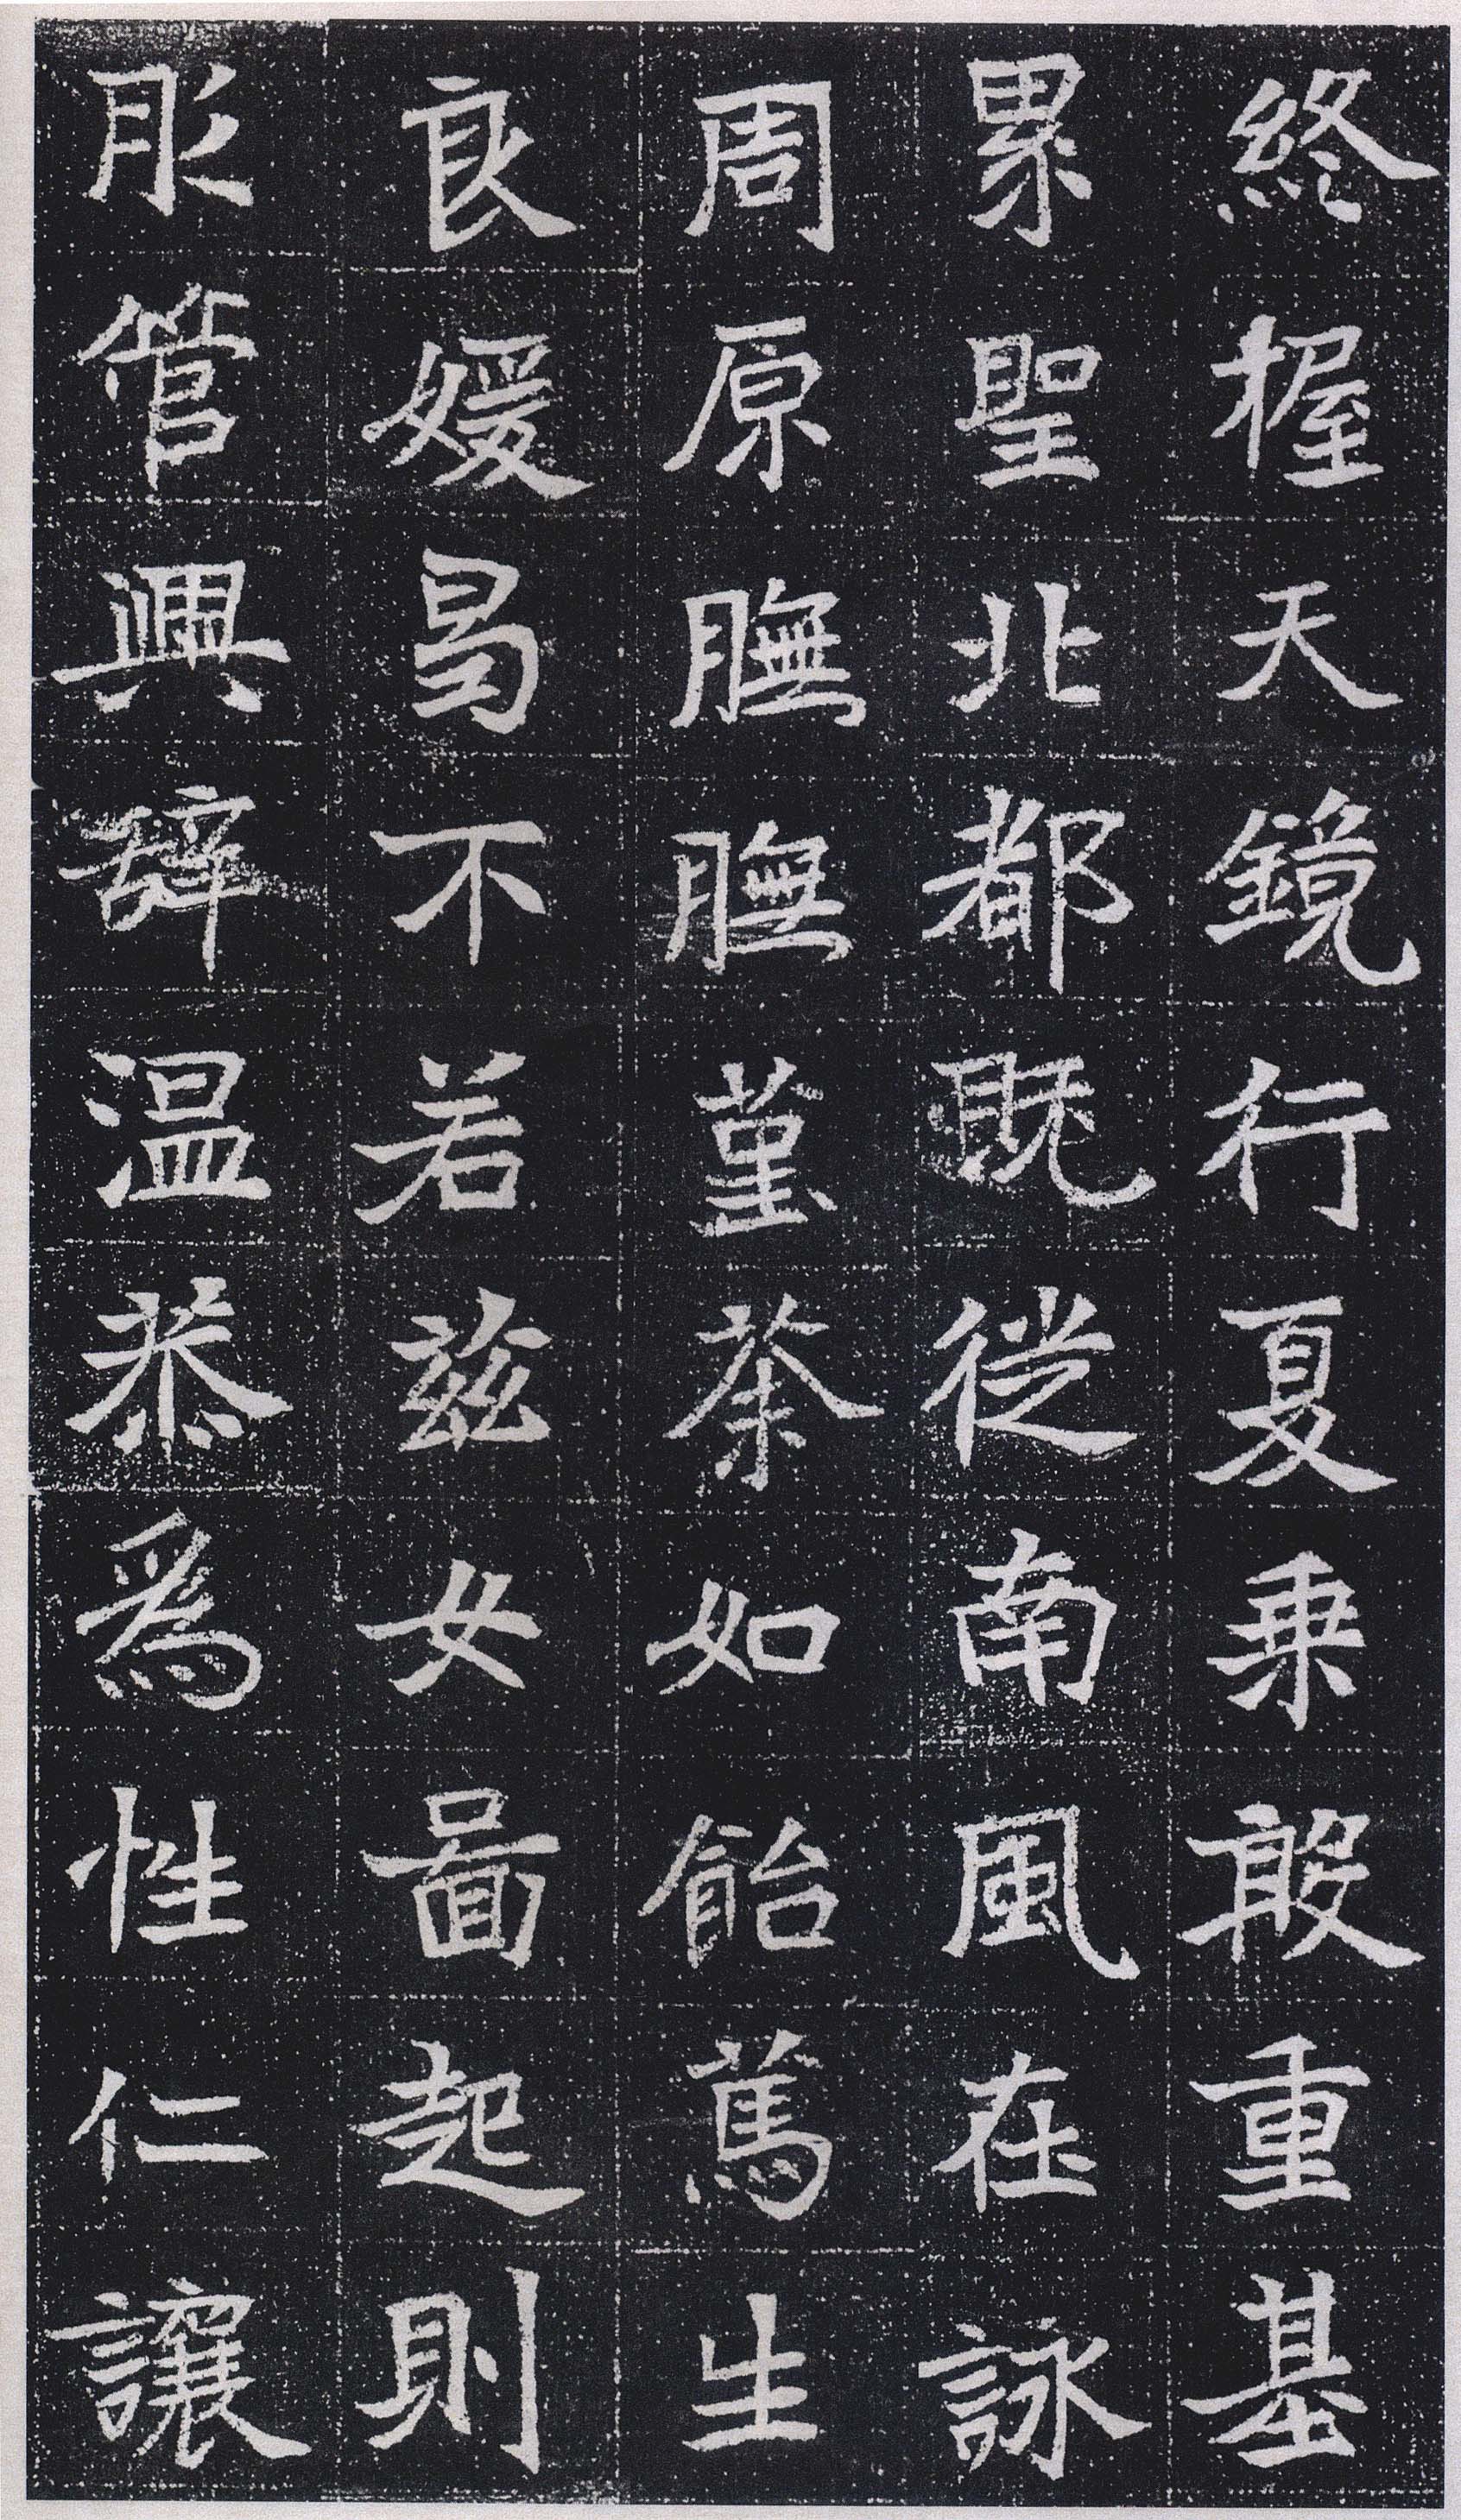 終握天鏡行夏乗敢重基
累聖北都既従南風在詠
周原膴膴菫荼如飴篤生
良媛曷不若茲女啚起則
彤管興辞温恭爲性仁讓